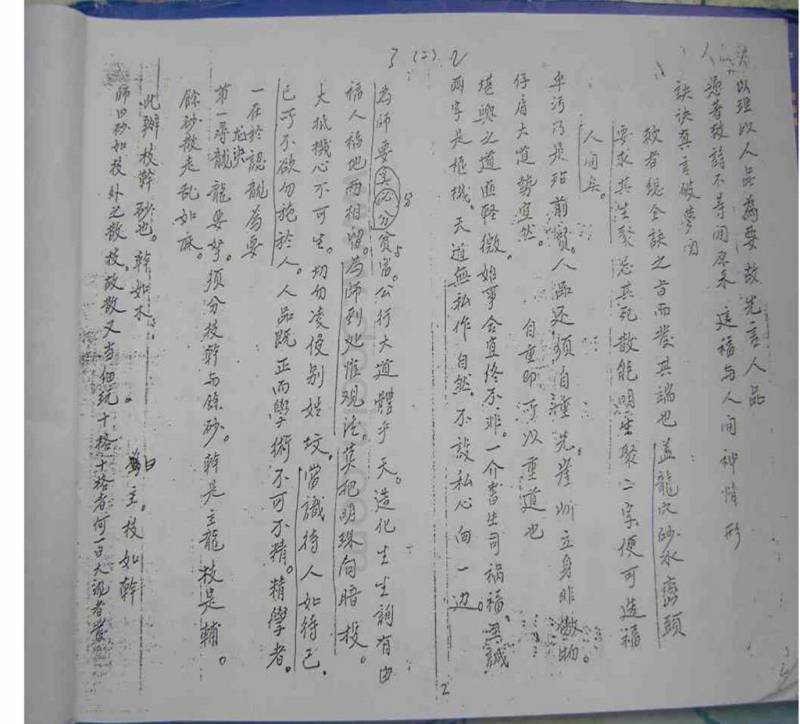 以理以人品為要故先言人品
愚者致詩不等閒忍來這福與人间神情形
訣訣真言破夢
致者總全訣之旨而發其端也盖龍穴砂水巒頭
要求其生聚忌其死散能明生聚二字便可造福
人间矣。
卑污乃是玷前賢。人品还须自重先。崖州立身非
仔肩大道勢宜然。自重即可以重道也
堪輿之道匪輕微。始事合宜终不非。一介書生司禍福、至誠
兩字是樞機、天道無私作自然。不設私心向一边。
3 (二) 2
為師要分貧富。公行大道體乎天。造化生生詢有由
福人福地两相留。為師到処惟观德。莫把明珠向暗投。
大抵機心不可生。切勿凌侵别姓坟。當識待人如待己、
己所不欲勿施於人。人品既正而學術不可不精。精學者。
一在於認龍為要
龙訣
第一尋龍龍要芽。须分枝幹与餘砂。幹是主龍枝是輔。
餘砂散走乱如麻。
此辦枝幹砂也。幹如木 為主。枝如幹
師曰砂如枝外之散。枝故散又当细玩十格。十格者何一曰大
2